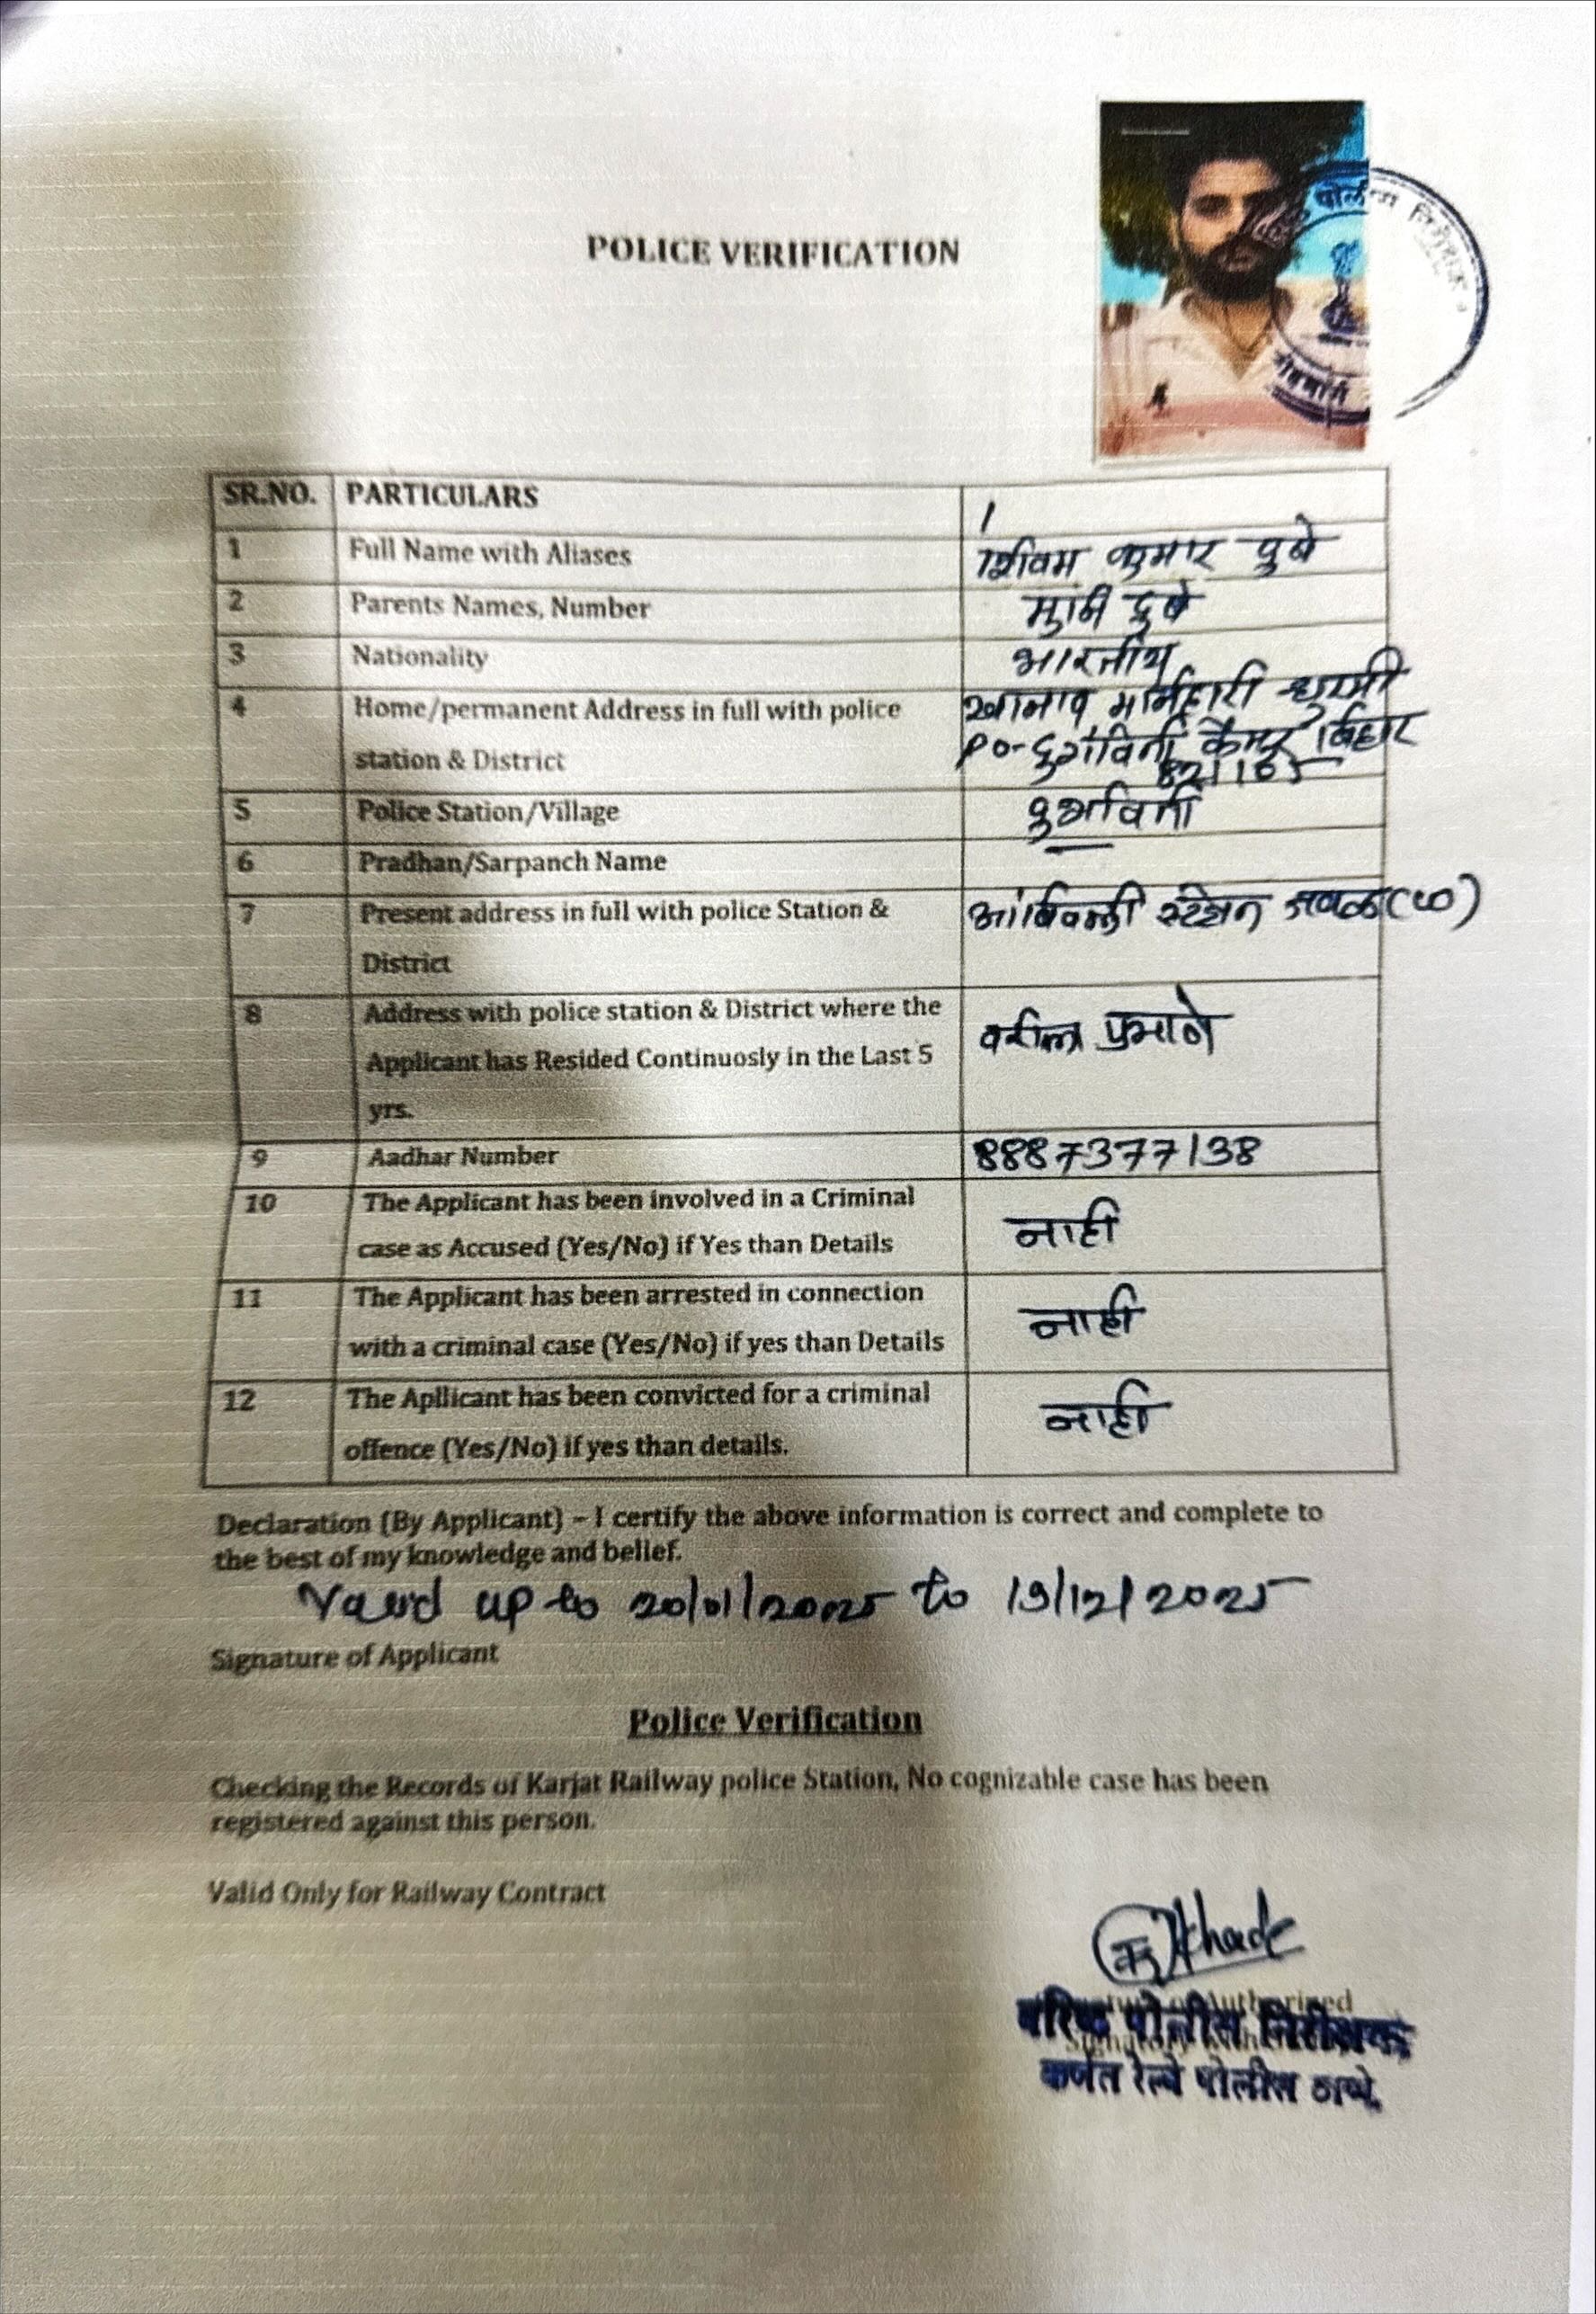 पोलीस निरीक्षक
POLICE VERIFICATION
SR.NO. PARTICULARS
1 Full Name with Aliases शिवम कुमार दुबे
2 Parents Names, Number मुनि दुबे
3 Nationality भारतीय
4 Home/permanent Address in full with police
station & District
खानाव
PO- दुर्गावती कैमूर बिहार
821105
5 Police Station/Village दुर्गावती
6 Pradhan/Sarpanch Name
7 Present address in full with police Station & आंबिवली स्टेशन जवळ
District
8 Address with police station & District where the
Applicant has Resided Continuosly in the Last 5
yrs.
वरील प्रमाणे
9 Aadhar Number 8887377138
10 The Applicant has been involved in a Criminal
case as Accused (Yes/No) if Yes than Details
नाही
11 The Applicant has been arrested in connection
with a criminal case (Yes/No) if yes than Details
नाही
12 The Apllicant has been convicted for a criminal
offence (Yes/No) if yes than details.
नाही
Declaration (By Applicant) – I certify the above information is correct and complete to
the best of my knowledge and belief.
Valid up to 20/01/2025 to 19/12/2025
Signature of Applicant
Police Verification
Checking the Records of Karjat Railway police Station, No cognizable case has been
registered against this person.
Valid Only for Railway Contract
वरिष्ठ पोलीस निरीक्षक
कर्जत रेल्वे पोलीस ठाणे